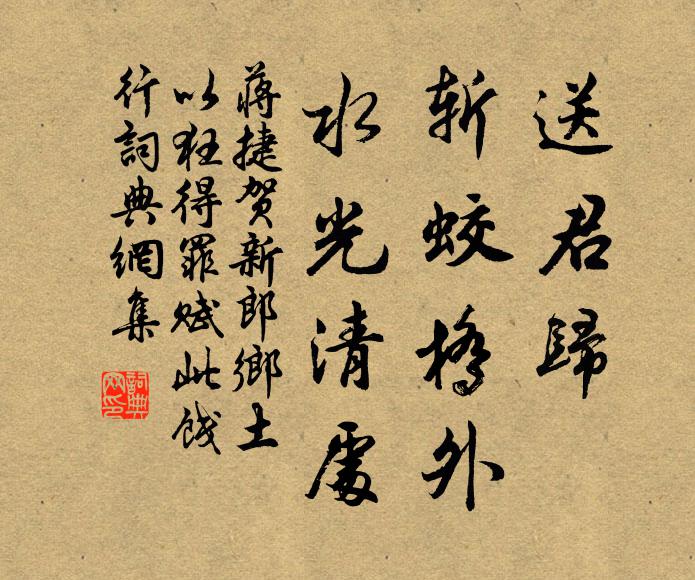 送君歸
斬蛟橋外
水光清處
蔣捷賀新郎鄉土
以狂得罪賦此餞
行詞典網集
詞典
网印